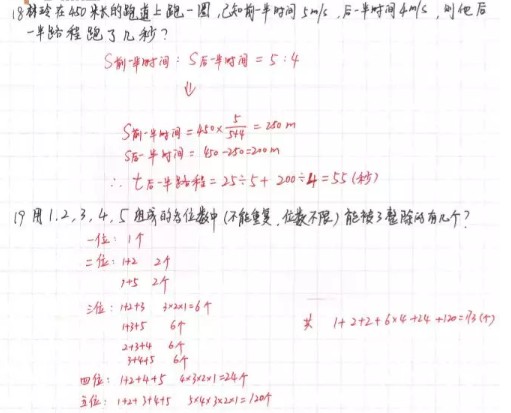 18 林玲在450米长的跑道上跑一圈,已知前一半时间5m/s,后一半时间4m/s,则他后
一半路程跑了几秒?
S前一半时间:S后一半时间=5:4
⇓
S前一半时间=450×5/5+4=250m
S后一半时间=450-250=200m
∴ t后一半路程=25÷5+200÷4=55(秒)
19 用1.2,3,4,5组成的各位数中(不能重复,位数不限)能被3整除的有几个?
一位:1个
二位:1+2 2个
1+5 2个
三位:1+2+3 3×2×1=6个
1+3+5 6个
2+3+4 6个
3+4+5 6个
共 1+2+2+6×4+24+120=173(个)
四位:1+2+4+5 4×3×2×1=24个
五位:1+2+3+4+5 5×4×3×2×1=120个